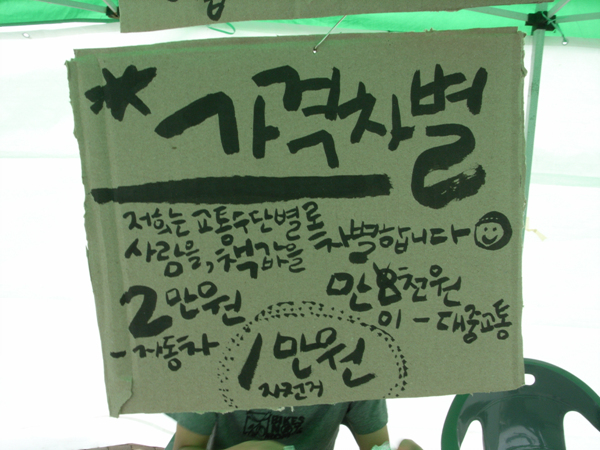 * 가격차별
저희는 교통수단별로
사람을, 책값을 차별합니다
2만원
- 자동차
만8천원
이 - 대중교통
1만원
자전거